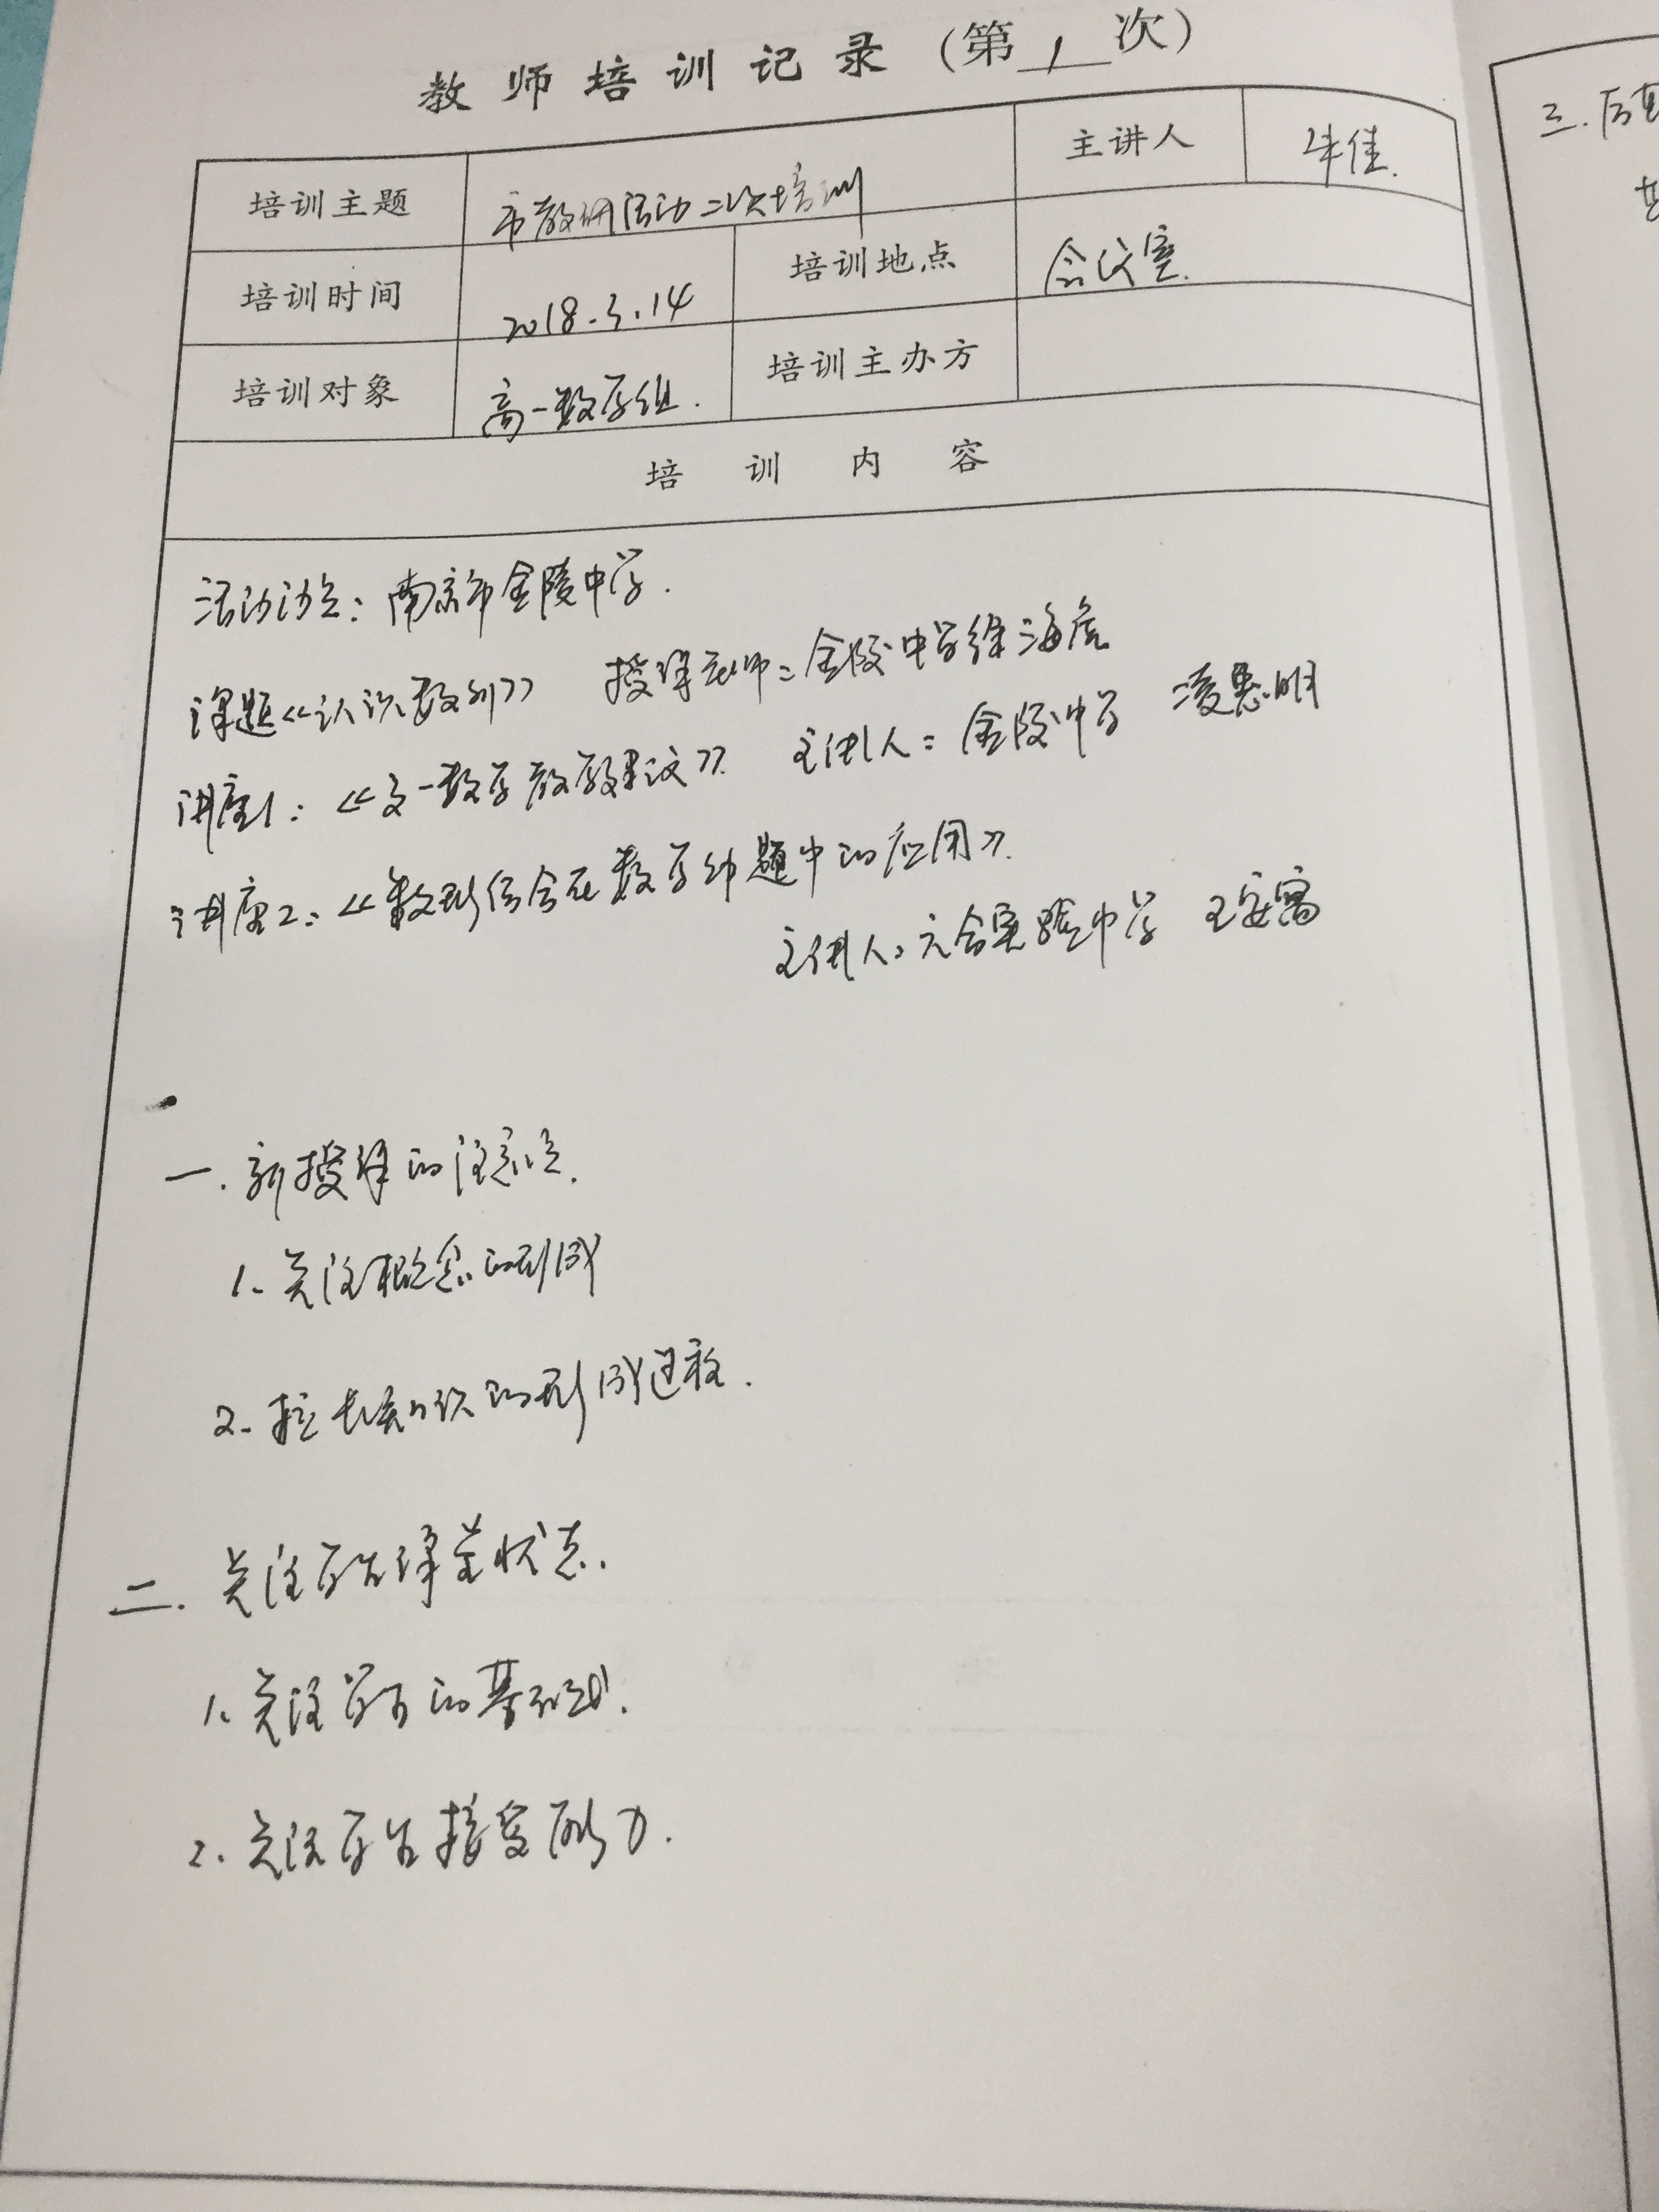 教师培训记录（第1次）
培训主题 市教研活动二次培训 主讲人 牛佳.
培训时间 2018.3.14 培训地点 会议室.
培训对象 高一数学组. 培训主办方
培训内容
活动地点：南京市金陵中学.
课题《认识数列》 授课老师：金陵中学徐海虎
讲座1：《高一数学教学建议》 主讲人：金陵中学 凌惠明
讲座2：《数形结合在数学解题中的应用》.
主讲人：六合实验中学 王安寓
一.新授课的注意点.
1.关注概念的形成
2.拉长知识的形成过程.
二.关注学生课堂状态.
1.关注学生的基础.
2.关注学生接受能力.
三.后